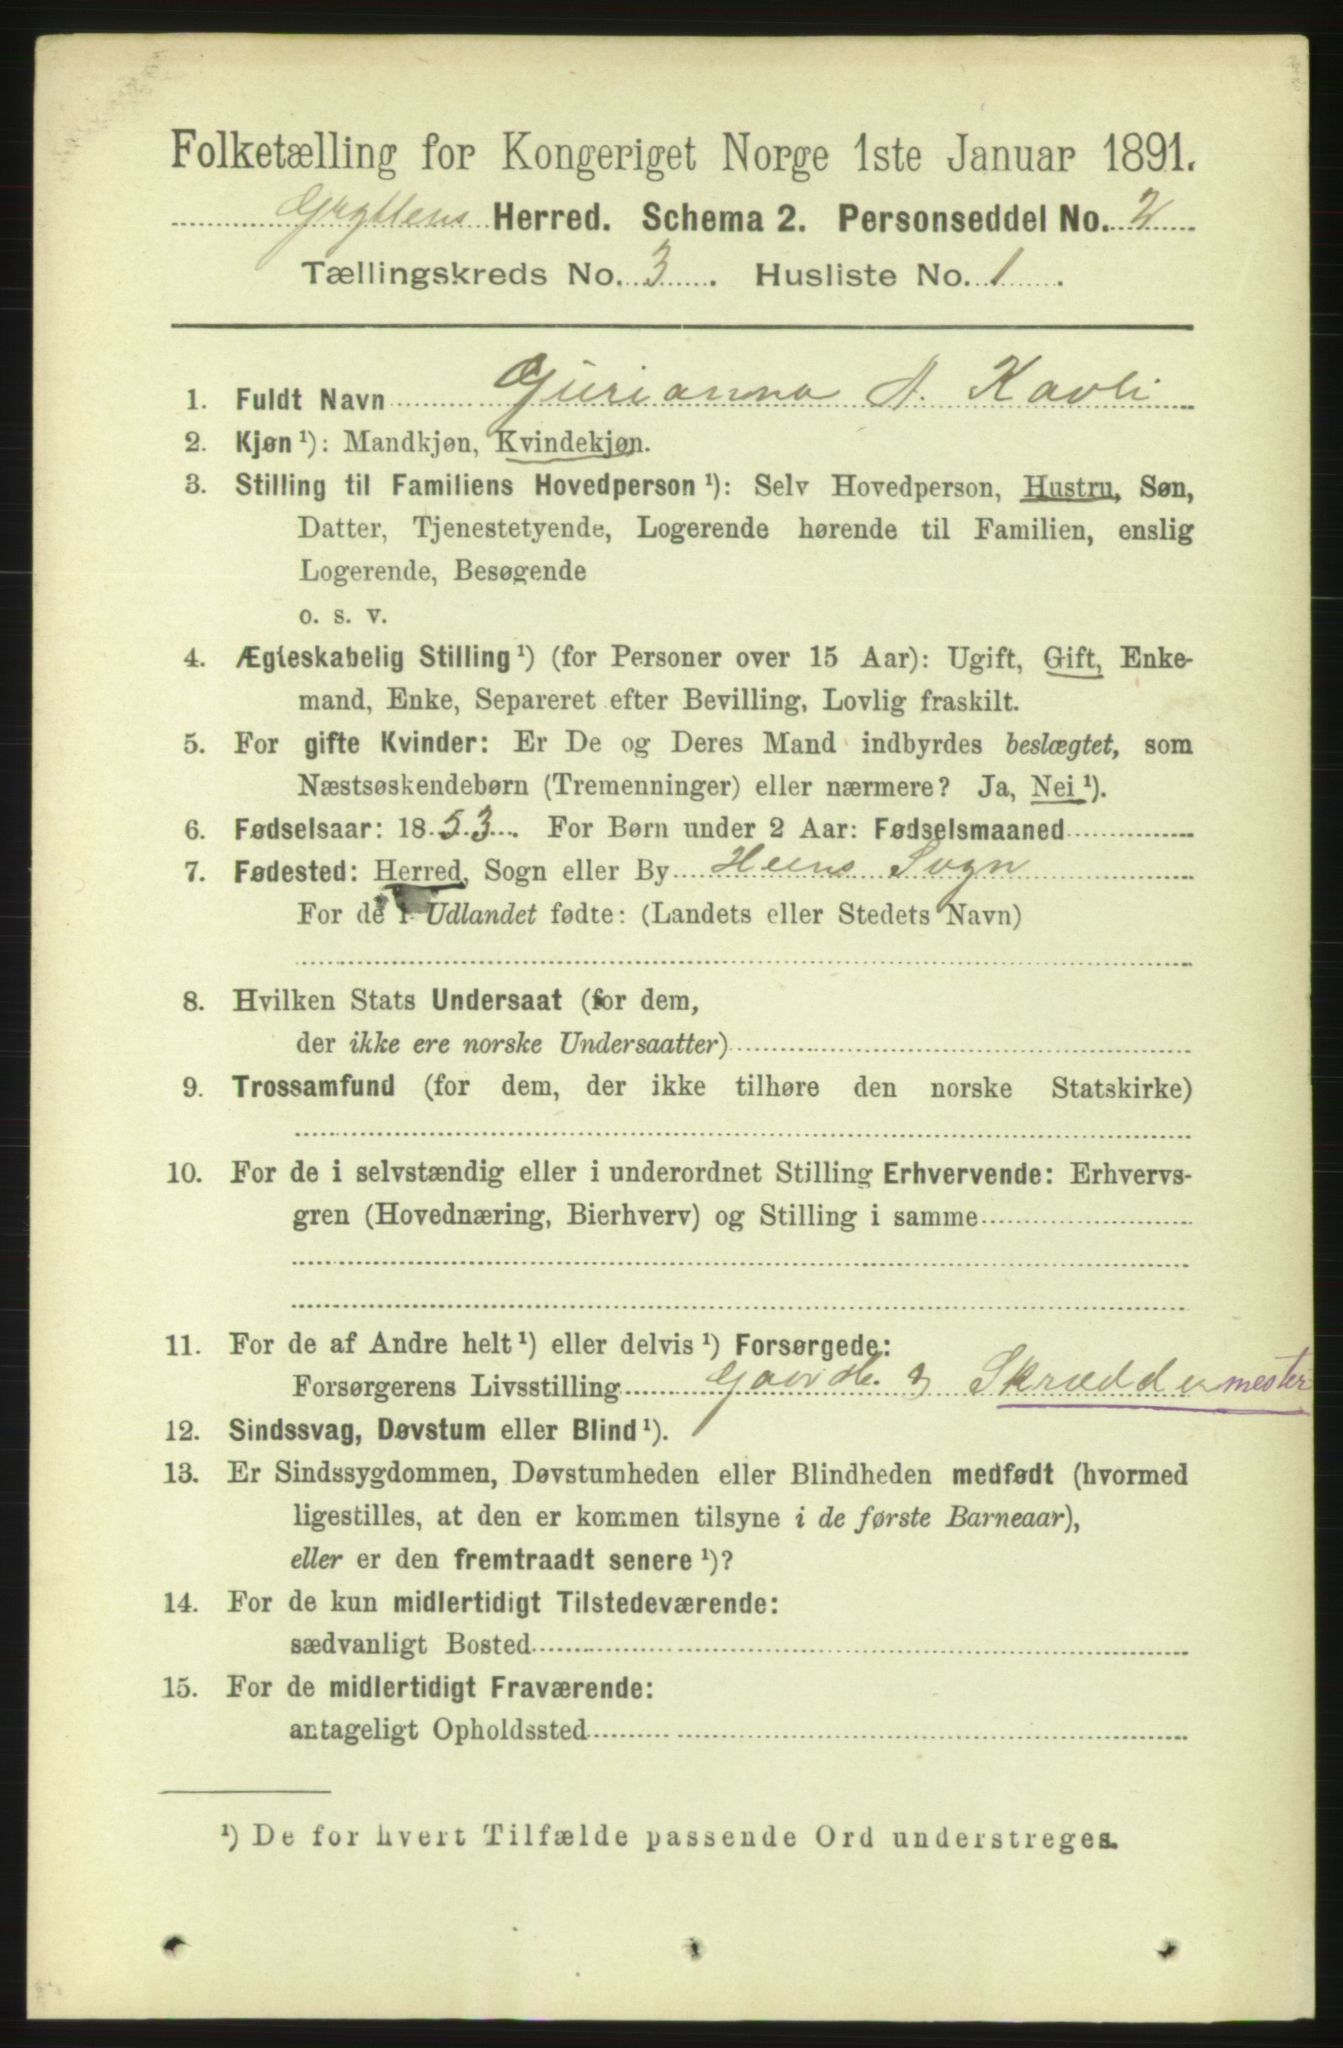 Folketælling for Kongeriget Norge 1ste Januar 1891.
Gryttens Herred. Schema 2. Personseddel No. 2
Tællingskreds No. 3. Husliste No. 1.
1. Fuldt Navn Gurianna A. Kavli
2. Kjøn ¹): Mandkjøn, Kvindekjøn.
3. Stilling til Familiens Hovedperson ¹): Selv Hovedperson, Hustru, Søn,
Datter, Tjenestetyende, Logerende hørende til Familien, enslig
Logerende, Besøgende
o. s. v.
4. Ægteskabelig Stilling ¹) (for Personer over 15 Aar): Ugift, Gift, Enke-
mand, Enke, Separeret efter Bevilling, Lovlig fraskilt.
5. For gifte Kvinder: Er De og Deres Mand indbyrdes beslægtet, som
Næstsøskendebørn (Tremenninger) eller nærmere? Ja, Nei ¹).
6. Fødselsaar: 1853. For Børn under 2 Aar: Fødselsmaaned
7. Fødested: Herred, Sogn eller By Heens Sogn
For de i Udlandet fødte: (Landets eller Stedets Navn)
8. Hvilken Stats Undersaat (for dem,
der ikke ere norske Undersaatter)
9. Trossamfund (for dem, der ikke tilhøre den norske Statskirke)
10. For de i selvstændig eller i underordnet Stilling Erhvervende: Erhvervs-
gren (Hovednæring, Bierhverv) og Stilling i samme
11. For de af Andre helt ¹) eller delvis ¹) Forsørgede:
Forsørgerens Livsstilling Skræddermester
12. Sindssvag, Døvstum eller Blind ¹).
13. Er Sindssygdommen, Døvstumheden eller Blindheden medfødt (hvormed
ligestilles, at den er kommen tilsyne i de første Barneaar),
eller er den fremtraadt senere ¹)?
14. For de kun midlertidigt Tilstedeværende:
sædvanligt Bosted
15. For de midlertidigt Fraværende:
antageligt Opholdssted
¹) De for hvert Tilfælde passende Ord understreges.